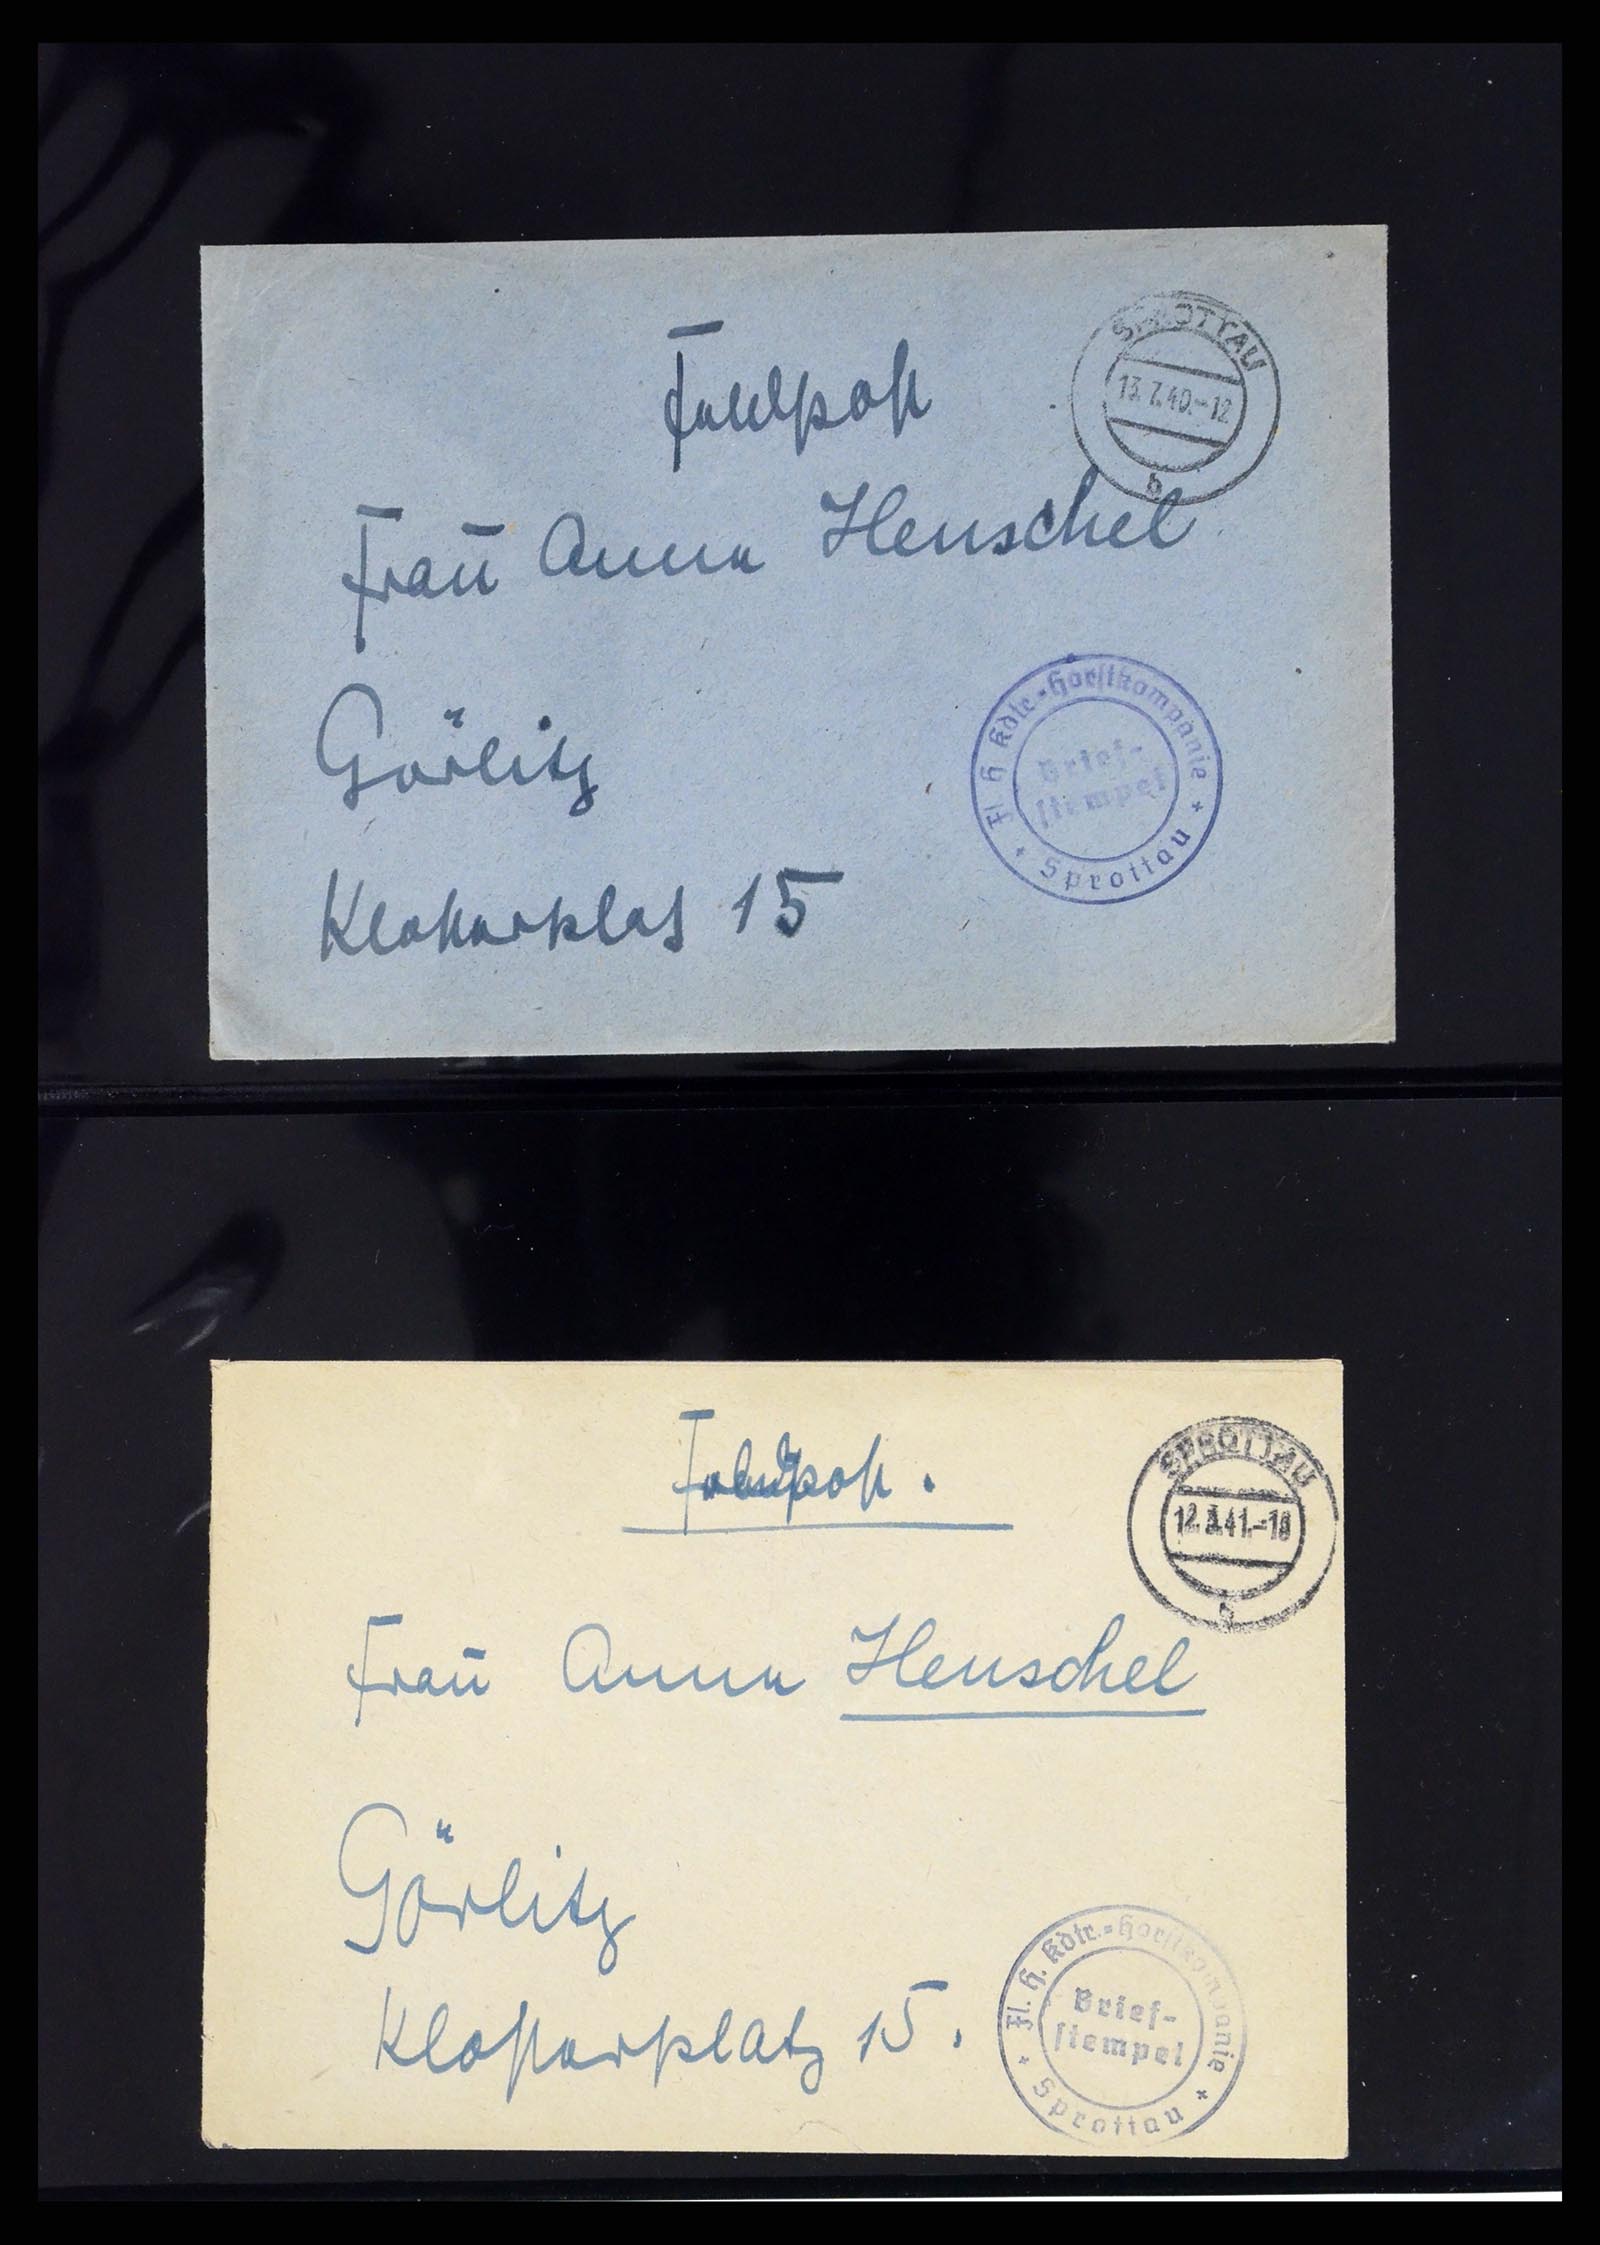 Feldpost
SPROTTAU
13.7.40.-12
b
Frau Anna Henschel
Fl. H. Kdtr.-Horstkompanie
Brief-
stempel
* Sprottau *
Görlitz
Klosterplatz 15
Feldpost.
SPROTTAU
12.3.41.-18
b
Frau Anna Henschel
Görlitz
Fl. H. Kdtr.-Horstkompanie
Brief-
stempel
* Sprottau *
Klosterplatz 15.